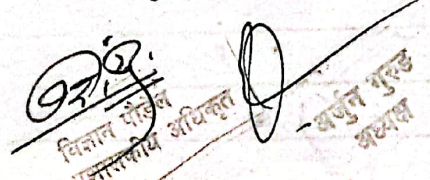 विज्ञान पौडेल
प्रशासकीय अधिकृत
अर्जुन गुरुङ
अध्यक्ष